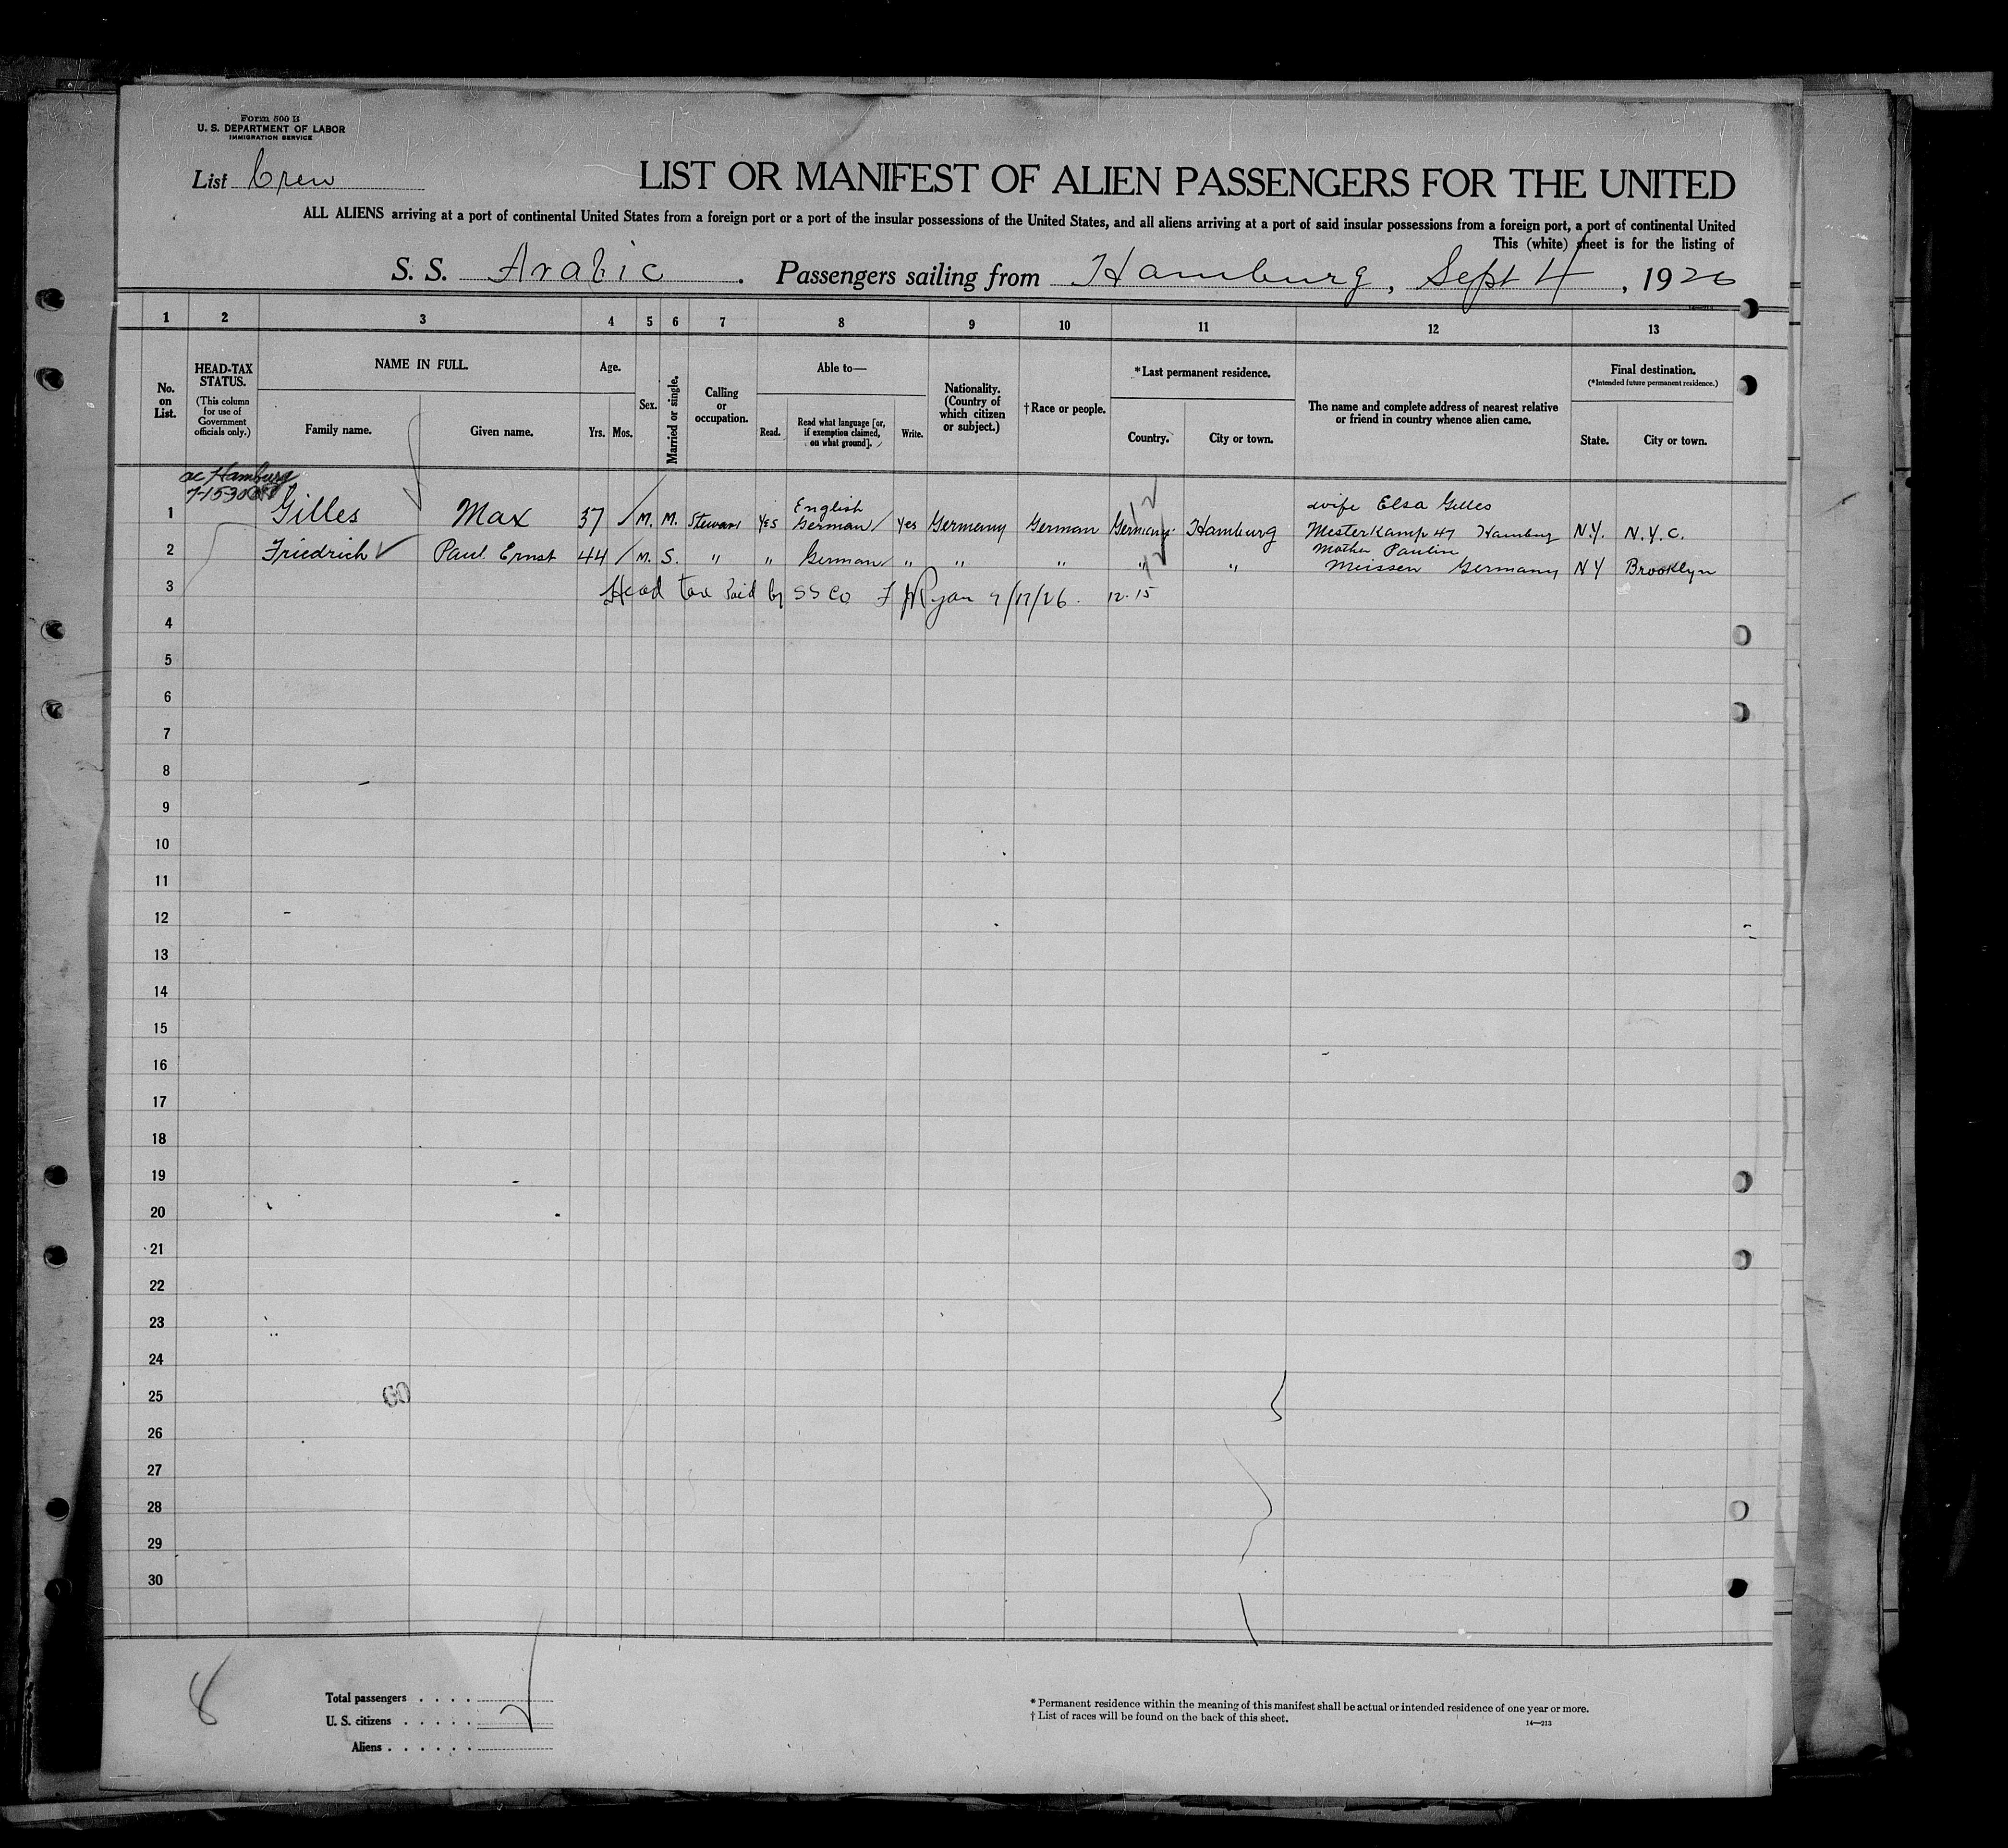 Form 500 B
U. S. DEPARTMENT OF LABOR
IMMIGRATION SERVICE
List Crew
LIST OR MANIFEST OF ALIEN PASSENGERS FOR THE UNITED
ALL ALIENS arriving at a port of continental United States from a foreign port or a port of the insular possessions of the United States, and all aliens arriving at a port of said insular possessions from a foreign port, a port of continental United
This (white) sheet is for the listing of
S. S. Arabic . Passengers sailing from Hamburg , Sept 4 , 1926
1 2 3 4 5 6 7 8 9 10 11 12 13
No. on List.
HEAD-TAX STATUS.
(This column for use of Government officials only.)
NAME IN FULL.
Family name. Given name.
Age.
Yrs. Mos.
Sex.
Married or single.
Calling or occupation.
Able to—
Read. Read what language [or, if exemption claimed, on what ground]. Write.
Nationality. (Country of which citizen or subject.)
†Race or people.
*Last permanent residence.
Country. City or town.
The name and complete address of nearest relative or friend in country whence alien came.
Final destination.
(*Intended future permanent residence.)
State. City or town.
ac Hamburg
7-15-30
English wife Elsa Gilles
1 Gilles Max 37 M. M. Steward Yes German Yes Germany German Germany Hamburg Mesterkamp 47 Hamburg N.Y. N.Y.C.
Mother Paulin
2 Friedrich Paul Ernst 44 M. S. " " German " " " " " Meissen Germany NY Brooklyn
3 Head tax Paid by SS Co Ryan 9/17/26. 12.15
4
5
6
7
8
9
10
11
12
13
14
15
16
17
18
19
20
21
22
23
24
25 60
26
27
28
29
30
8
Total passengers . . . .
U. S. citizens . . . . .
Aliens . . . . . .
* Permanent residence within the meaning of this manifest shall be actual or intended residence of one year or more.
† List of races will be found on the back of this sheet.
14—213